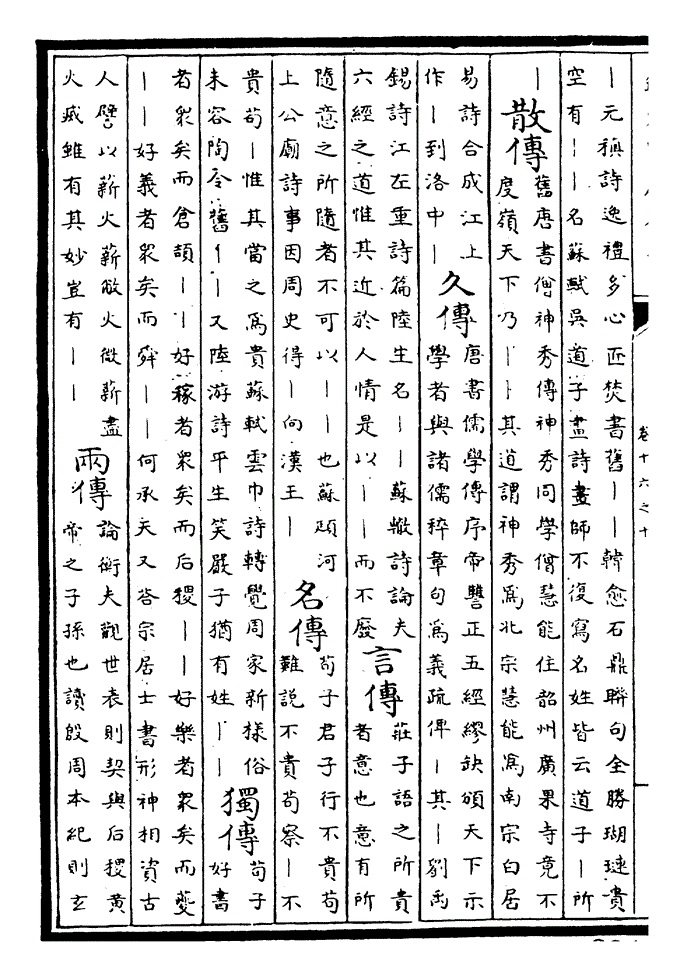 ｜元稹詩逸禮多心匠焚書舊｜｜韓愈石鼎聯句全勝瑚璉貴
空有｜｜名蘇軾吳道子畫詩畫師不復寫名姓皆云道子｜所
｜
散傳
舊唐書僧神秀傳神秀同學僧慧能住韶州廣果寺竟不
度嶺天下乃｜｜其道謂神秀為北宗慧能為南宗白居
易詩合成江上
作｜到洛中｜
久傳
唐書儒學傳序帝讐正五經繆缺頒天下示
學者與諸儒稡章句為義疏俾｜其｜劉禹
錫詩江左重詩篇陸生名｜｜蘇轍詩論夫
六經之道惟其近於人情是以｜｜而不廢
言傳
莊子語之所貴
者意也意有所
隨意之所隨者不可以｜｜也蘇頲河
上公廟詩事因周史得｜向漢王｜
名傳
荀子君子行不貴苟
難説不貴苟察｜不
貴苟｜惟其當之為貴蘇軾雲巾詩轉覺周家新様俗
未容陶令舊｜｜又陸游詩平生笑嚴子猶有姓｜｜
獨傳
荀子
好書
者衆矣而倉頡｜｜好稼者衆矣而后稷｜｜好樂者衆矣而夔
｜｜好義者衆矣而舜｜｜何承天又答宗居士書形神相資古
人譬以薪火薪敝火微薪盡
火滅雖有其妙豈有｜｜
兩傳
論衡夫觀世表則契與后稷黄
帝之子孫也讀殷周本紀則玄
卷十六之十